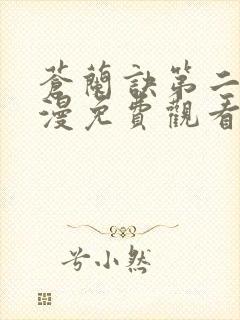 蒼蘭訣第二
漫免費觀看
兮小然